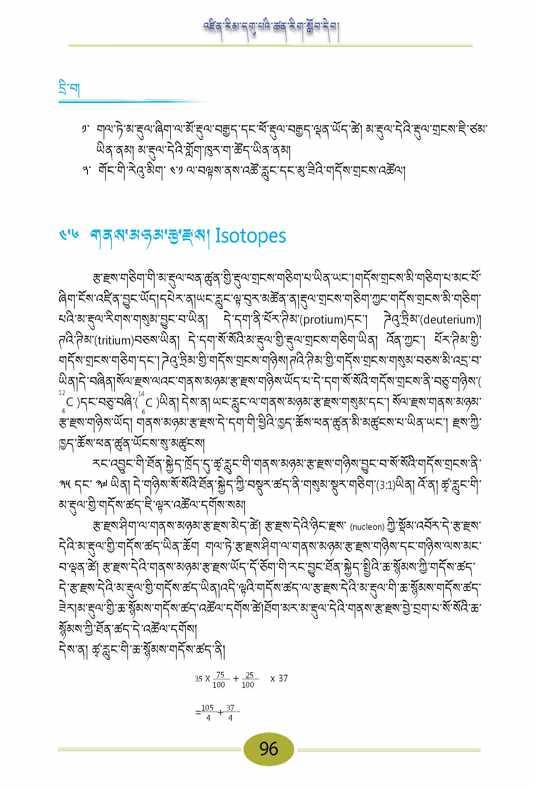 འཛིན་རིམ་དགུ་པའི་ཚན་རིག་སློབ་དེབ།
དྲི་བ།
༡་ གལ་ཏེ་མ་རྡུལ་ཞིག་ལ་མོ་རྡུལ་བརྒྱད་དང་ཕོ་རྡུལ་བརྒྱད་ལྡན་ཡོད་ཚེ། མ་རྡུལ་དེའི་རྡུལ་གྲངས་ཇི་ཙམ་
ཡིན་ནམ། མ་རྡུལ་དེའི་གློག་ཁུར་ག་ཚོད་ཡིན་ནམ།
༢་ གོང་གི་རེའུ་མིག་ ༤་༡ ལ་བལྟས་ནས་འཚོ་རླུང་དང་མུ་ཟིའི་གདོས་གྲངས་འཚོལ།
༤་༦ གནས་མཉམ་རྩ་རྫས། Isotopes
རྩ་རྫས་གཅིག་གི་མ་རྡུལ་ཕན་ཚུན་གྱི་རྡུལ་གྲངས་གཅིག་པ་ཡིན་ཡང་།གདོས་གྲངས་མི་གཅིག་པ་མང་པོ་
ཞིག་ངོས་འཛིན་བྱུང་ཡོད།དཔེར་ན།ཡང་རླུང་ལྟ་བུར་མཚོན་ན།རྡུལ་གྲངས་གཅིག་ཀྱང་གདོས་གྲངས་མི་གཅིག་
པའི་མ་རྡུལ་རིགས་གསུམ་བྱུང་བ་ཡིན། དེ་དག་ནི་པོར་ཊིམ་(protium)དང་། ཌེའུ་ཊྲིམ་(deuterium)།
ཊའི་ཊིམ་(tritium)བཅས་ཡིན། དེ་དག་སོ་སོའི་མ་རྡུལ་གྱི་རྡུལ་གྲངས་གཅིག་ཡིན། འོན་ཀྱང་། པོར་ཊིམ་གྱི་
གདོས་གྲངས་གཅིག་དང་། ཌེའུ་ཊྲིམ་གྱི་གདོས་གྲངས་གཉིས།ཊའི་ཊིམ་གྱི་གདོས་གྲངས་གསུམ་བཅས་མི་འདྲ་བ་
ཡིན།དེ་བཞིན།སོལ་རྫས་ལའང་གནས་མཉམ་རྩ་རྫས་གཉིས་ཡོད་པ་དེ་དག་སོ་སོའི་གདོས་གྲངས་ནི་བཅུ་གཉིས་(
12 6 C )དང་བཅུ་བཞི་( 14 6 C )ཡིན། དེས་ན། ཡང་རླུང་ལ་གནས་མཉམ་རྩ་རྫས་གསུམ་དང་། སོལ་རྫས་གནས་མཉམ་
རྩ་རྫས་གཉིས་ཡོད། གནས་མཉམ་རྩ་རྫས་དེ་དག་གི་ཕྱིའི་ཁྱད་ཆོས་ཕན་ཚུན་མི་མཚུངས་པ་ཡིན་ཡང་། རྫས་ཀྱི་
ཁྱད་ཆོས་ཕན་ཚུན་ཡོངས་སུ་མཚུངས།
རང་འབྱུང་གི་ཐོན་སྐྱེད་ཁྲོད་དུ་ཚྭ་རླུང་གི་གནས་མཉམ་རྩ་རྫས་གཉིས་བྱུང་བ་སོ་སོའི་གདོས་གྲངས་ནི་
༣༥ དང་ ༣༧ ཡིན། དེ་གཉིས་སོ་སོའི་ཐོན་སྐྱེད་ཀྱི་བསྡུར་ཚད་ནི་གསུམ་སྡུར་གཅིག་(3:1)ཡིན། འོ་ན། ཚྭ་རླུང་གི་
མ་རྡུལ་གྱི་གདོས་ཚད་ཇི་ལྟར་འཚོལ་དགོས་སམ།
རྩ་རྫས་ཤིག་ལ་གནས་མཉམ་རྩ་རྫས་མེད་ཚེ། རྩ་རྫས་དེའི་ཉིང་རྫས་ (nucleon) ཀྱི་སྡོམ་འབོར་དེ་རྩ་རྫས་
དེའི་མ་རྡུལ་གྱི་གདོས་ཚད་ཡིན་ཆོག གལ་ཏེ་རྩ་རྫས་ཤིག་ལ་གནས་མཉམ་རྩ་རྫས་གཉིས་དང་གཉིས་ལས་མང་
བ་ལྡན་ཚེ། རྩ་རྫས་དེའི་གནས་མཉམ་རྩ་རྫས་ཡོད་དོ་ཅོག་གི་རང་བྱུང་ཐོན་སྐྱེད་སྤྱིའི་ཆ་སྙོམས་ཀྱི་གདོས་ཚད་
དེ་རྩ་རྫས་དེའི་མ་རྡུལ་གྱི་གདོས་ཚད་ཡིན།འདི་ལྟའི་གདོས་ཚད་ལ་རྩ་རྫས་དེའི་མ་རྡུལ་གྱི་ཆ་སྙོམས་གདོས་ཚད་
ཟེར།མ་རྡུལ་གྱི་ཆ་སྙོམས་གདོས་ཚད་འཚོལ་དགོས་ཚེ།ཐོག་མར་མ་རྡུལ་དེའི་གནས་རྩ་རྫས་བྱེ་བྲག་པ་སོ་སོའི་ཆ་
སྙོམས་ཀྱི་ཐོན་ཚད་དེ་འཚོལ་དགོས།
དེས་ན། ཚྭ་རླུང་གི་ཆ་སྙོམས་གདོས་ཚད་ནི།
35 X 75/100 + 25/100 x 37
=105/4 + 37/4
96